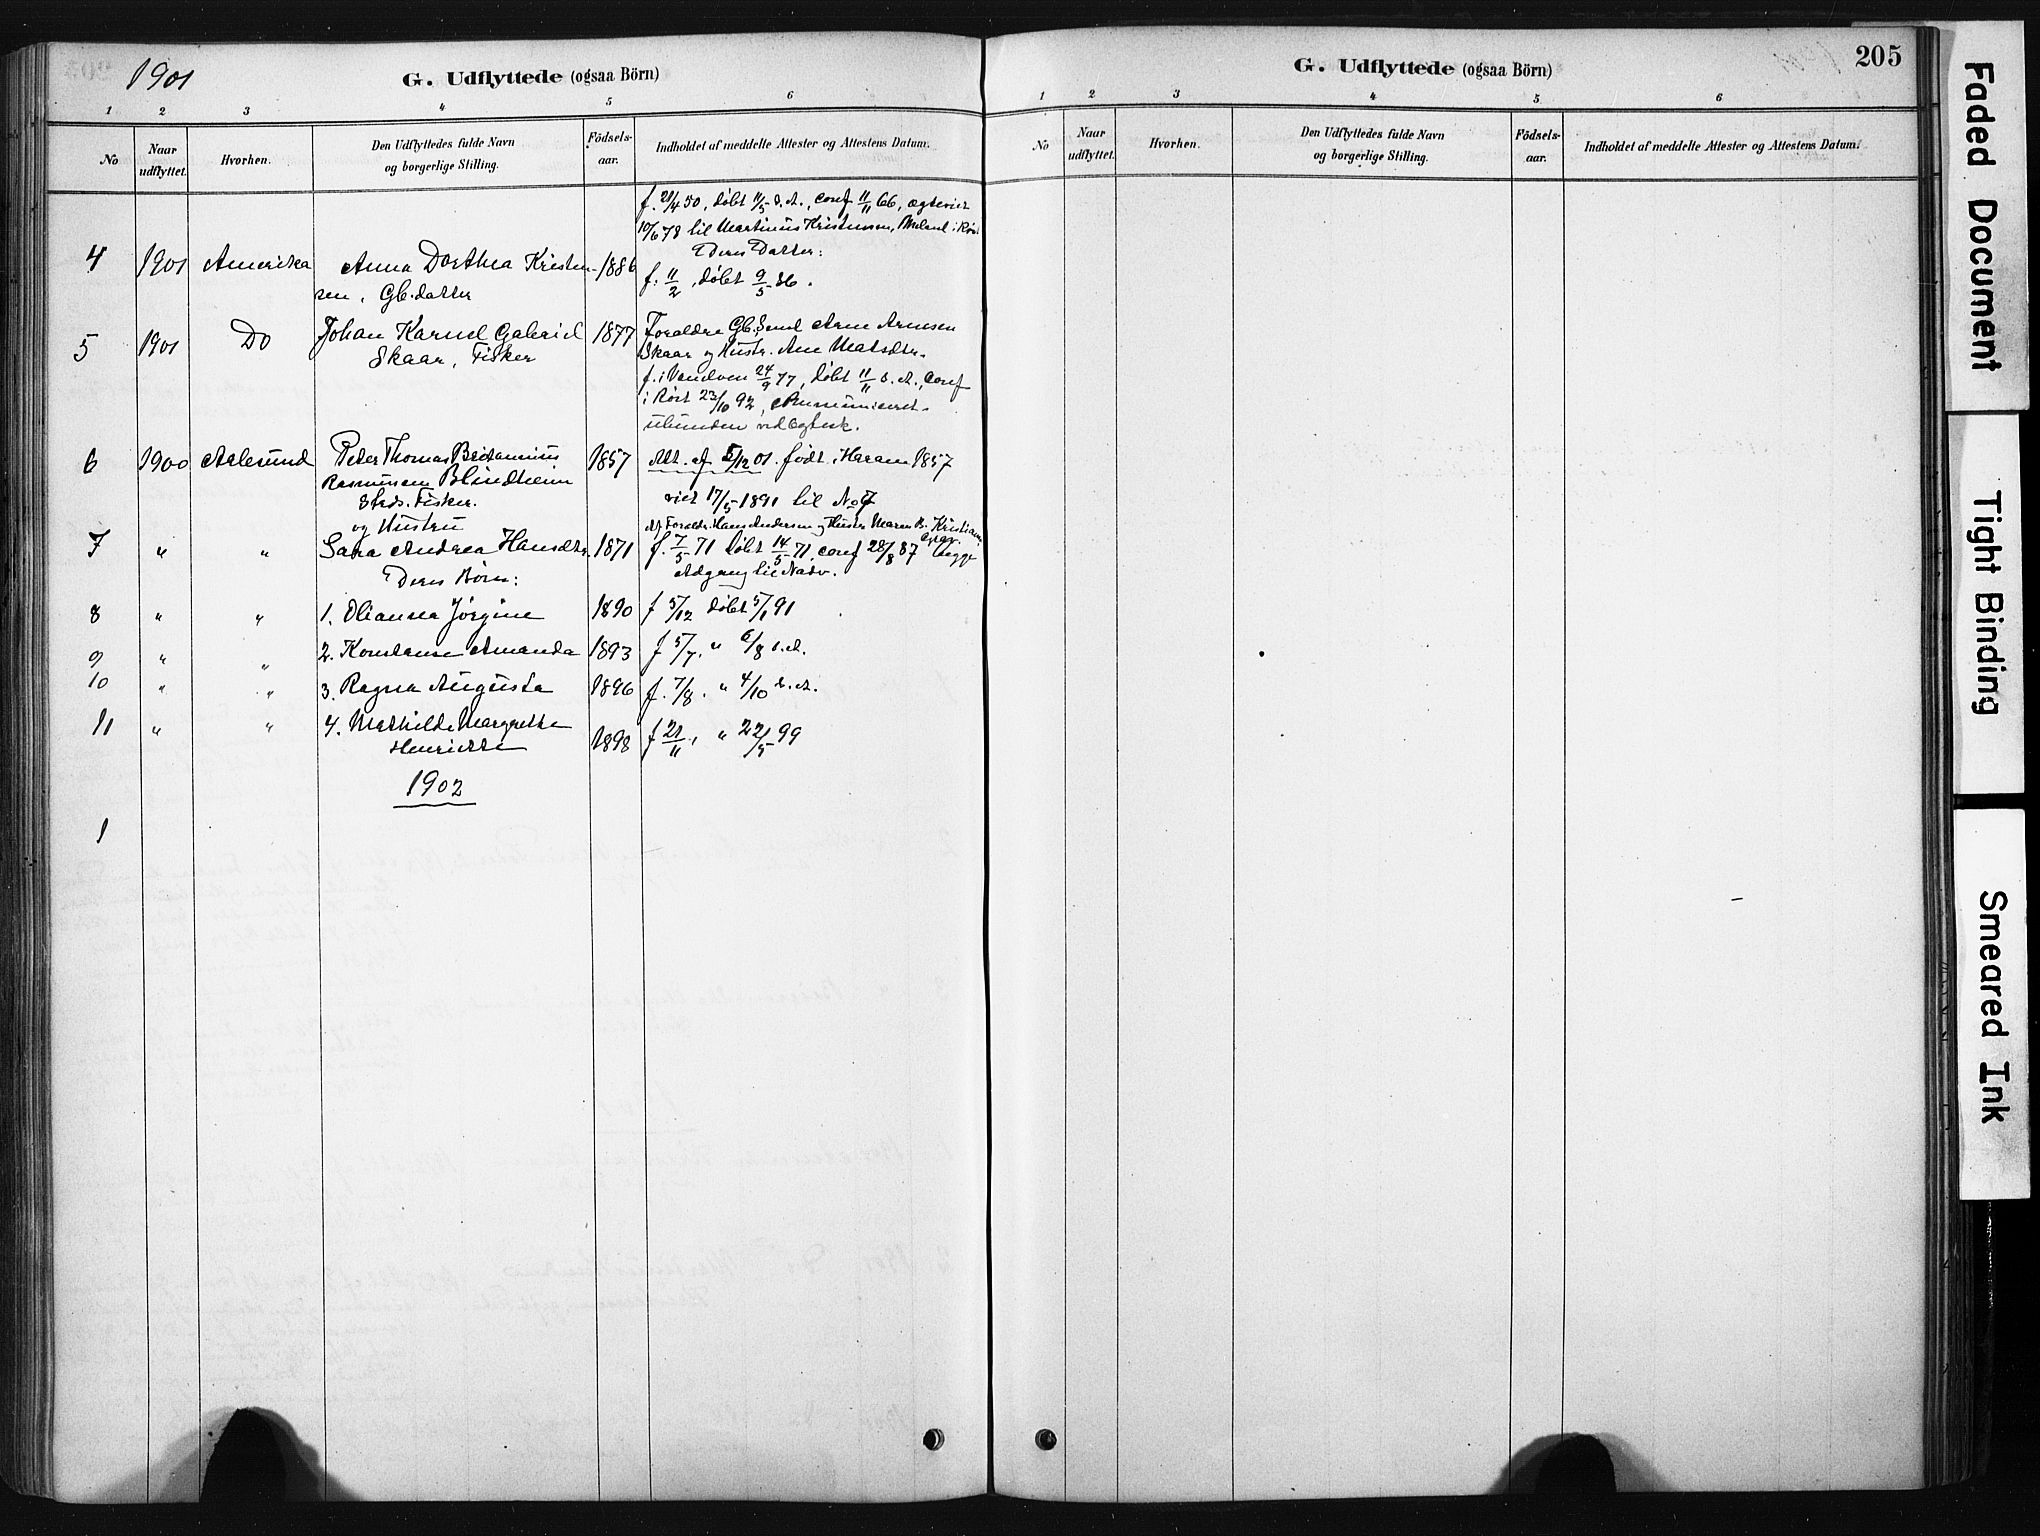 1901
G. Udflyttede (ogsaa Börn)
1 2 3 4 5 6
No
Naar udflyttet.
Hvorhen.
Den Udflyttedes fulde Navn og borgerlige Stilling.
Födsels-aar.
Indholdet af meddelte Attester og Attestens Datum.
f. 28/4 50, döbt 11/5 s.A., conf 11/11 66, ægteviet
10/6 78 til Martinus Kristensen,
Deres Datter:
4 1901 Amerika Anna Dorthea Kristen- 1886 f. 11/2, döbt 9/5 86.
sen, Gb.datter
5 1901 Do Johan Karnel Gabriel 1877 Forældre Gb. Arne Arnesen
Skaar, Fisker Skaar og Hustr. Ane Matsdtr.
f. i 24/9 77, döbt 11/11 s.A., conf
23/10 92,
6 1900 Aalesund Peter Thomas Britannius 1857 Att. af 5/12 01. født i Haram 1857
Rasmussen Blindheim
Strds. Fisker. viet 17/5 1891 til No 7
og Hustru
Af Foreldr. Hans Andersen og Hustr Maren B. Kristians
7 " " Sara Andrea Hansdtr 1871 f. 7/5 71 döbt 14/5 71, conf 28/8 87 begge
Deres Börn: Adgang til Nadv.
8 " " 1. Oliansea Jörgine 1890 f 5/12 döbt 5/1 91
9 " " 2. Konstanse Amanda 1893 f 5/7. " 6/8 s.A.
10 " " 3. Ragna Augusta 1896 f. 7/8. " 4/10 s.A.
11 " " 4. Mathilde Margrethe
Henriette 1898 f 21/11, " 22/5 99
1902
1
205
G. Udflyttede (ogsaa Börn)
1 2 3 4 5 6
No
Naar udflyttet.
Hvorhen.
Den Udflyttedes fulde Navn og borgerlige Stilling.
Födsels-aar.
Indholdet af meddelte Attester og Attestens Datum.
Faded Document
Tight Binding
Smeared Ink